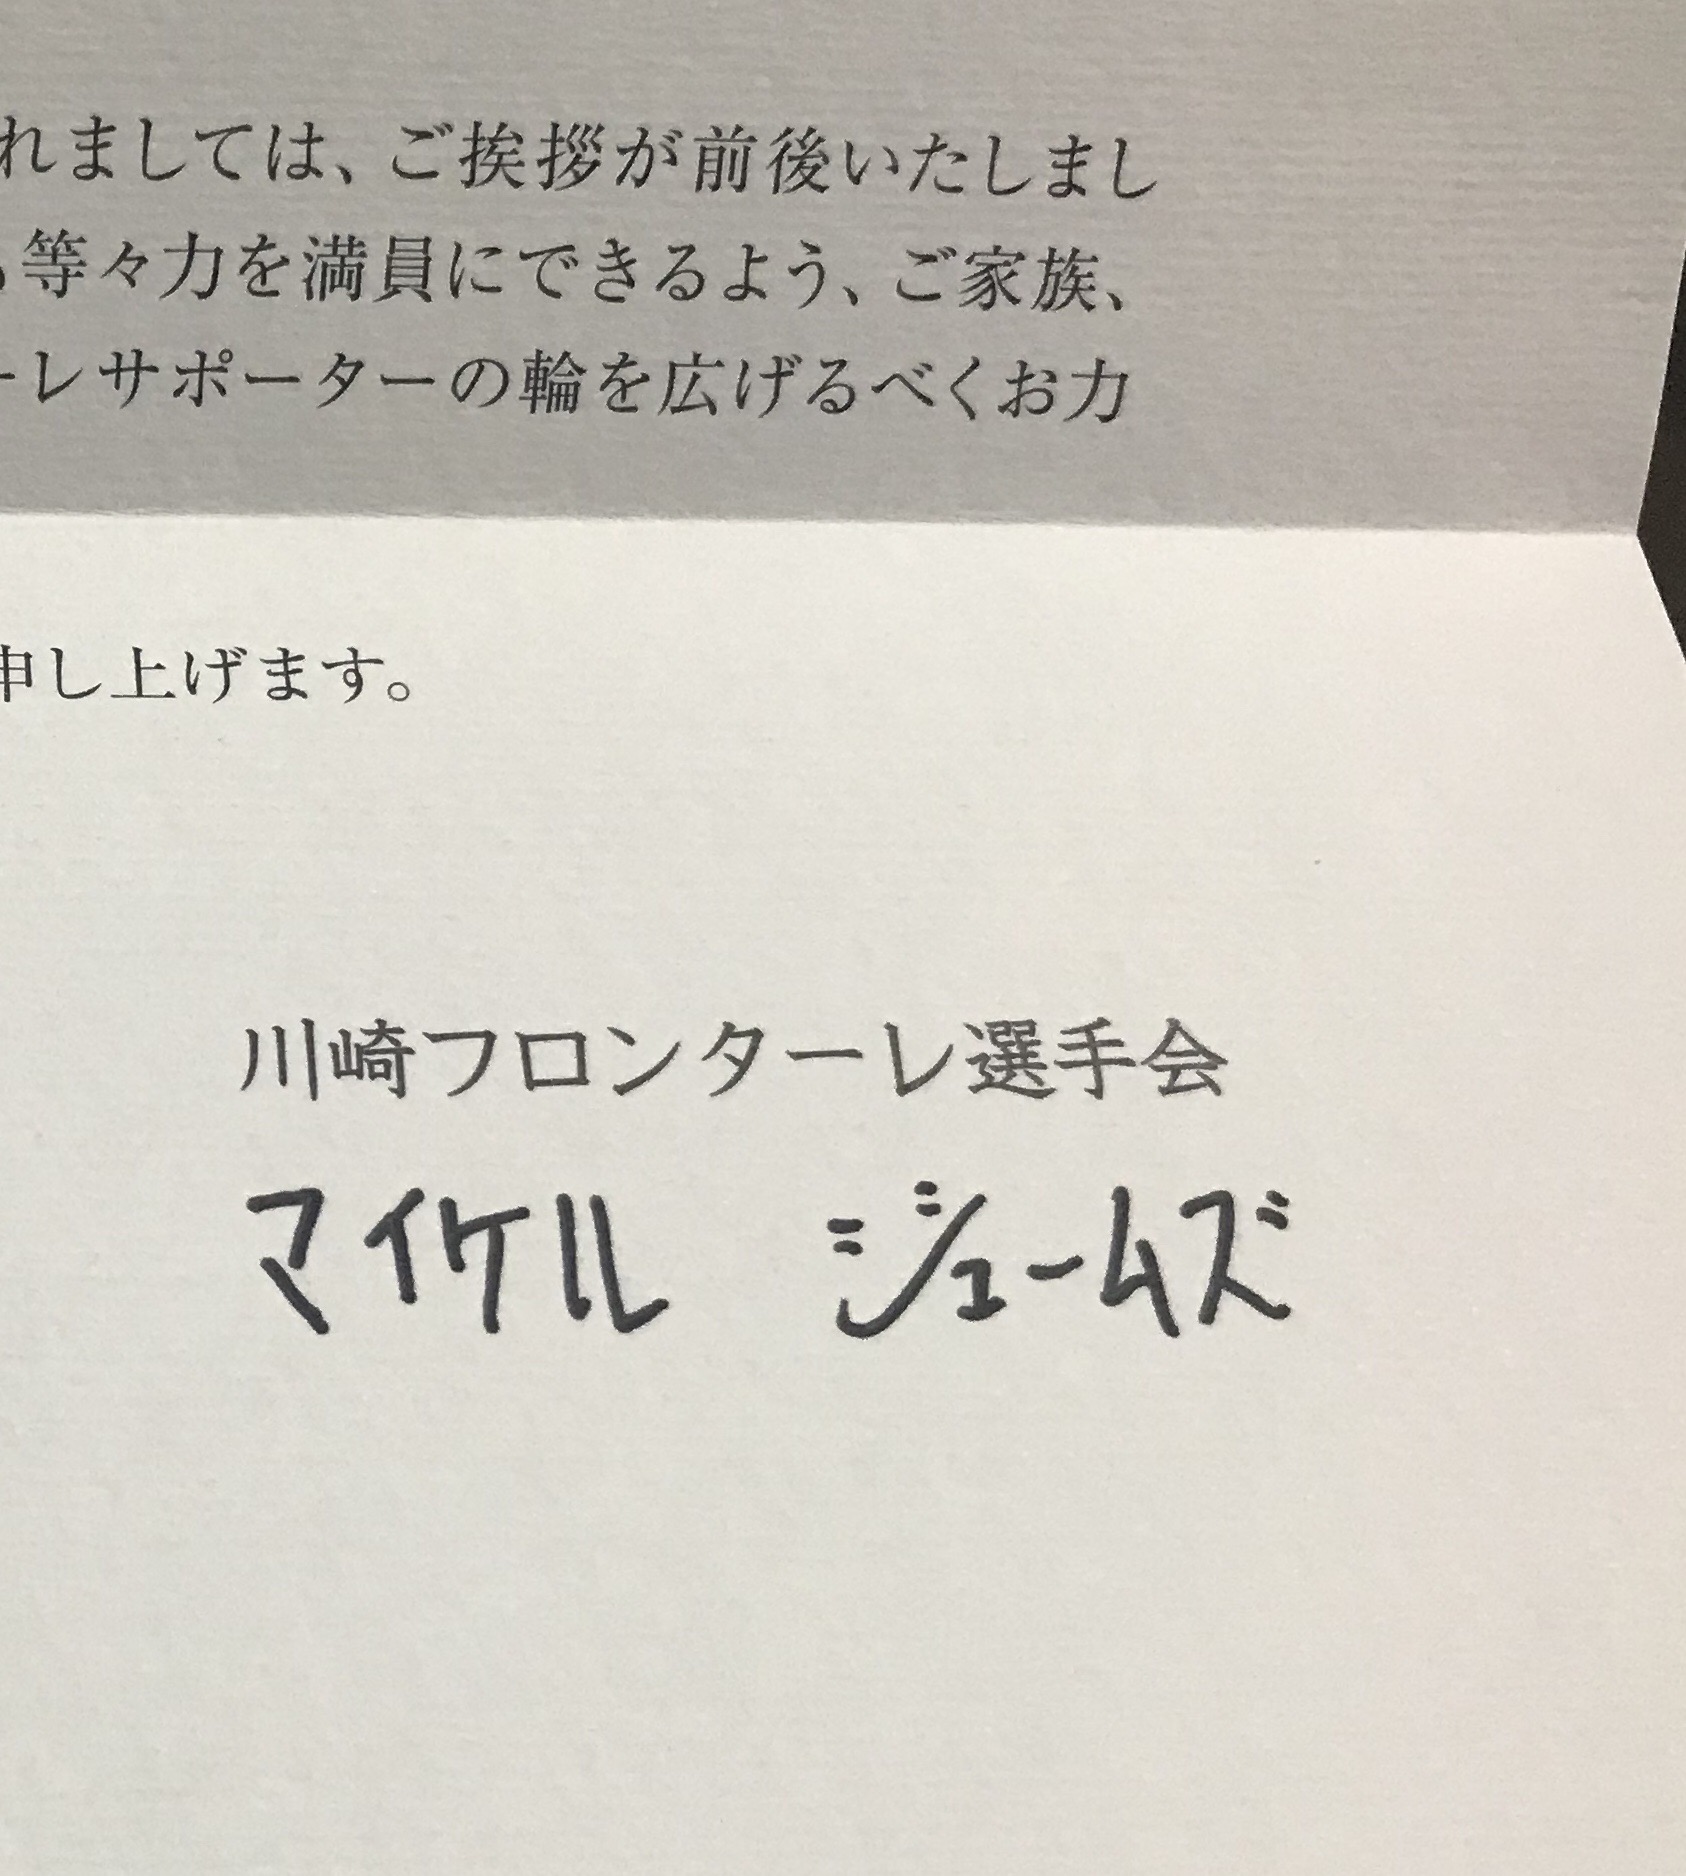 れましては、ご挨拶が前後いたしまし
等々力を満員にできるよう、ご家族、
ーレサポーターの輪を広げるべくお力
申し上げます。
川崎フロンターレ選手会
マイケル ジェームズ